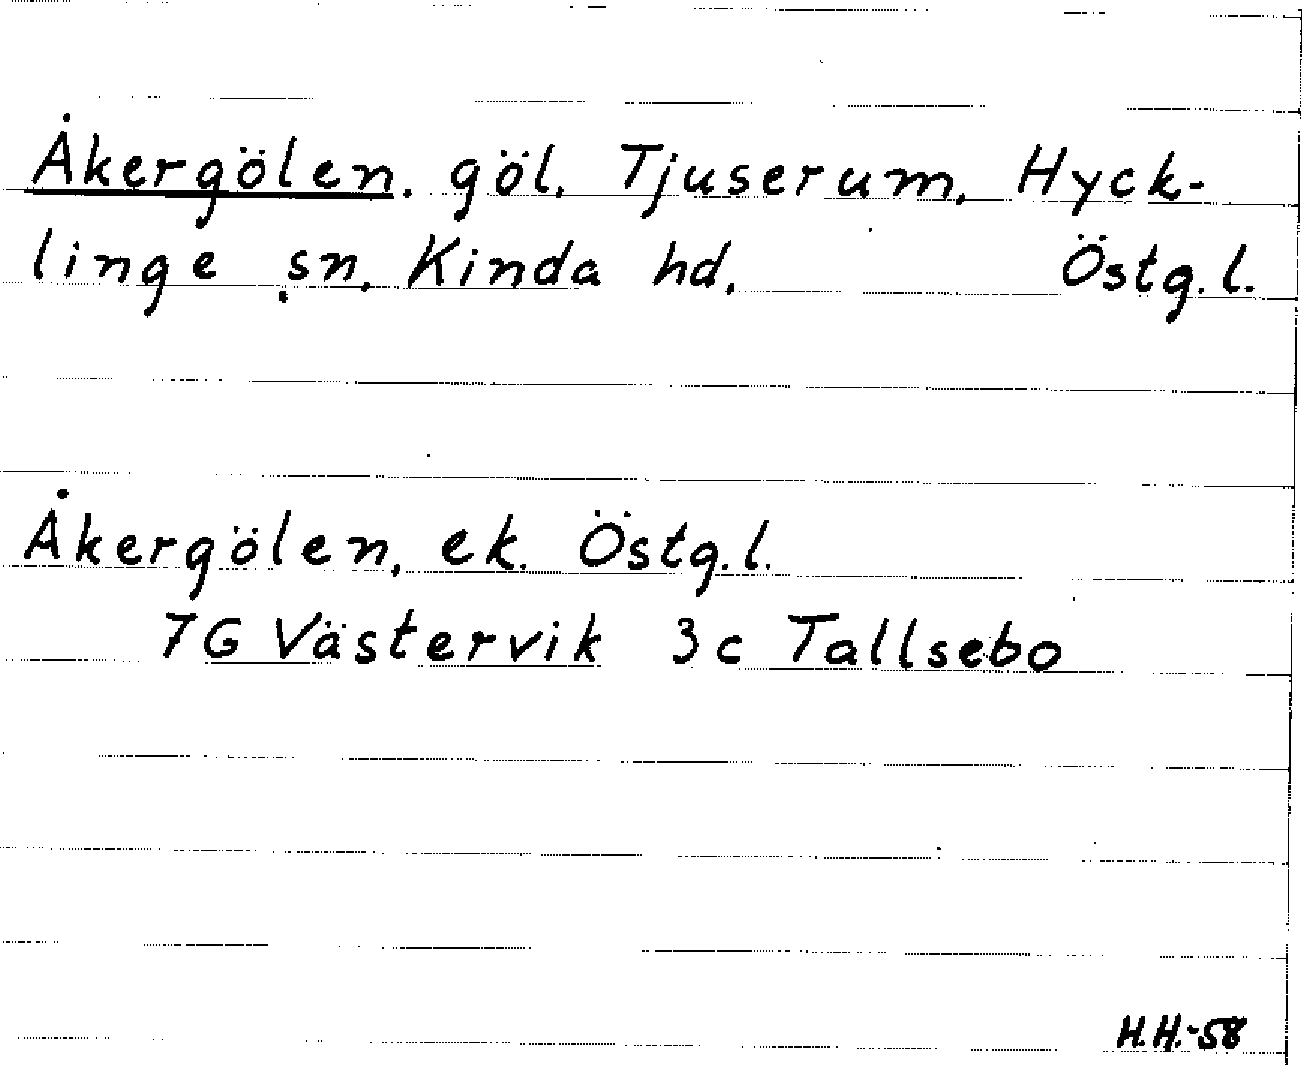 Åkergölen. göl, Tjuserum, Hyck-
linge sn, Kinda hd, Östg. l.
Åkergölen, ek. Östg. l.
7G Västervik 3c Tallsebo
H.H.-58